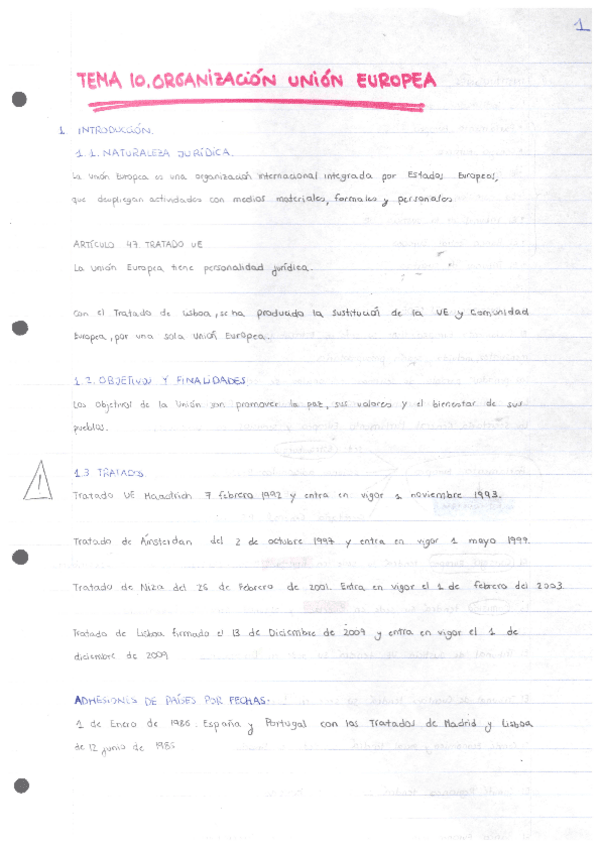 1
TEMA 10. ORGANIZACIÓN UNIÓN EUROPEA
1 INTRODUCCIÓN.
1.1. NATURALEZA JURÍDICA.
La Unión Europea es una organización internacional integrada por Estados Europeos,
que despliegan actividades con medios materiales, formales y personales
ARTÍCULO 47. TRATADO UE
La Unión Europea tiene personalidad jurídica.
Con el Tratado de Lisboa, se ha producido la sustitución de la UE y Comunidad
Europea, por una sola Unión Europea.
1.2. OBJETIVOS Y FINALIDADES
Los objetivos de la Unión son promover la paz, sus valores y el bienestar de sus
pueblos.
!
1.3 TRATADOS
Tratado UE Maastrich 7 febrero 1992 y entra en vigor 1 noviembre 1993.
Tratado de Ámsterdan del 2 de octubre 1997 y entra en vigor 1 mayo 1999.
Tratado de Niza del 26 de Febrero de 2001. Entra en vigor el 1 de febrero del 2003.
Tratado de Lisboa firmado el 13 de Diciembre de 2007 y entra en vigor el 1 de
diciembre de 2009
ADHESIONES DE PAÍSES POR FECHAS.
1 de Enero de 1986. España y Portugal con los Tratados de Madrid y Lisboa
de 12 junio de 1985